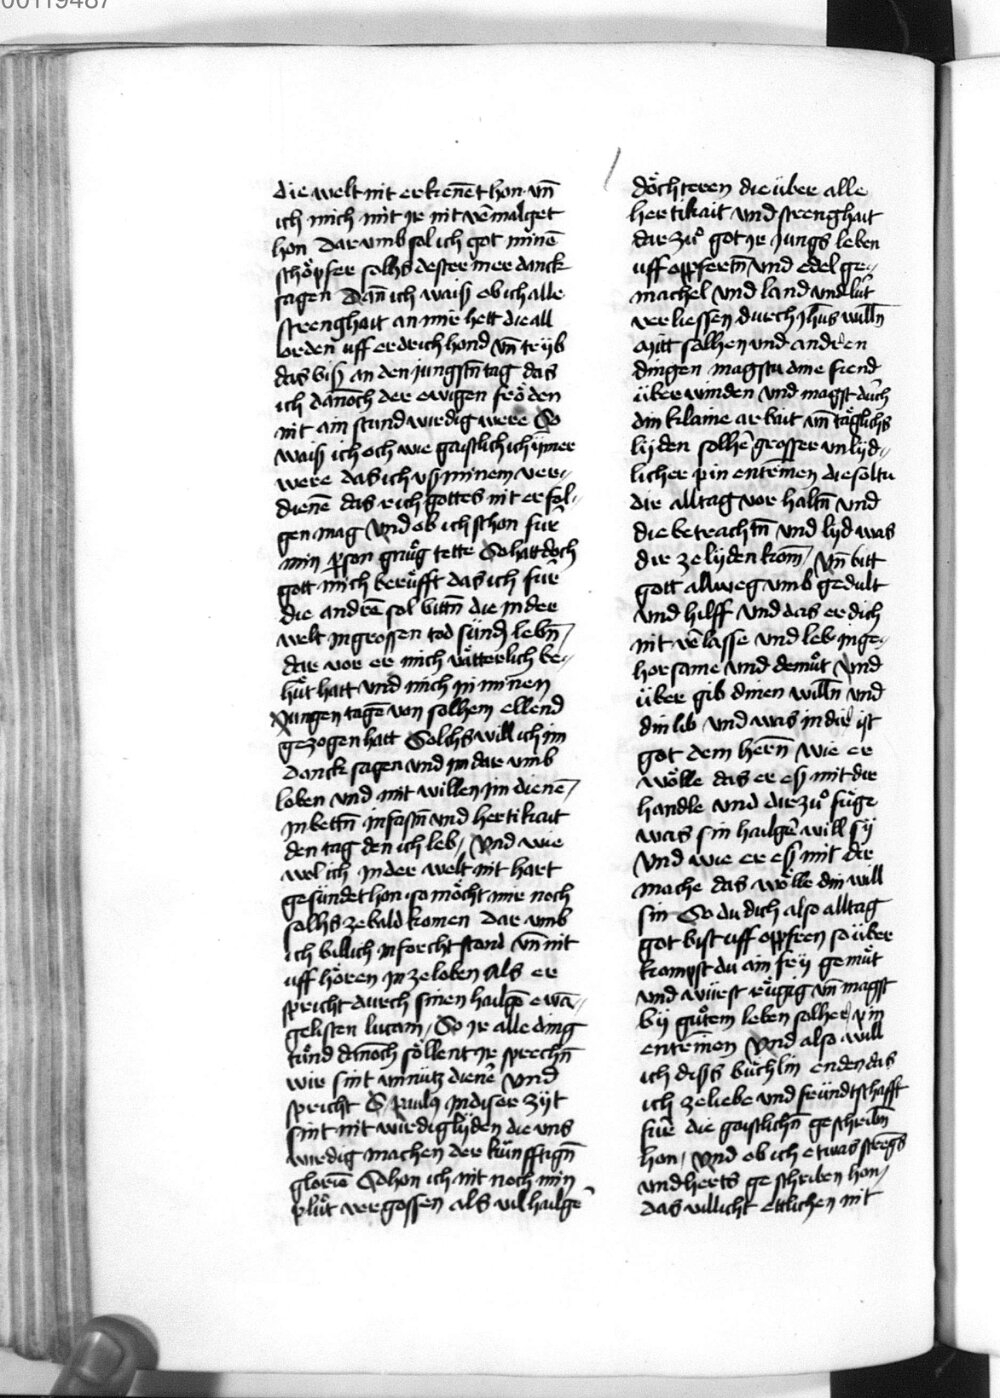 00119487
die welt nit erkeñet hon vñ
ich mich mit ir nit vẽmalget
hon Dar vmb sol ich got minẽ
schöpfer solhs dester mer danck
sagen Dañ ich waiß ob ich alle
strenghait an mir hett die all
orden uff erdrich hond vñ treyb
das biß an den jungstñ tag das
ich dañoch der ewigen fröden
nit ain stund wirdig were So
waiß ich och wie gaistlich ich ÿmer
were das ich uß minem ver-
dienẽ das rich gottes nit erfol-
gen mag Vnd ob ich schon für
min pson gnůg tette So hatt doch
gott mich berüfft das ich für
die andrẽ sol bittñ die in der
welt in grossen tod sünd lebñ
dar vor er mich vätterlich be-
hüt hatt vnd mich in minen
Jungen tagẽ von solhem ellend
gezogen hatt Solchs will ich im
danck sagen vnd in dar vmb
loben vnd mit willen im dienẽ
in bettñ in fastñ vnd hertikait
den tag den ich leb / Vnd wie
wol ich in der welt nit hart
gesündet hon so möcht mir noch
solhs ze bald komen Dar vmb
ich billich in forcht stond vñ nit
uff hören in ze loben Als er
spricht durch sinen hailgẽ ewã-
gelisten lucam / So ir alle ding
tůnd dañoch söllent ir sprechñ
wir sint vnnütz dienẽ Vnd
spricht S paulq In diser zÿt
sint nit wirdig lÿden die vns
wirdig machen der künfftigñ
glorie So hon ich nit noch min
plůt vergossen als vil hailgẽ
döchteren die über alle
hertikait vnd strenghait
dar zů got ir jungs leben
uff oppfertñ vnd edel ge-
machel vnd land vnd lüt
verliessen durch jhus willñ
Mitt solhen vnd andren
dingen magstu dine fiend
überwinden vnd magst duch
din klaine arbait vñ täglichs
lÿden solhẽ grosser vnlÿd-
licher pin entriñen die soltu
dir alltag vor haltñ vnd
die betrachtñ vnd lÿd was
dir ze lÿden kom̃ / vñ bitt
gott allweg vmb gedult
vnd hilff vnd das er dich
nit vẽlasse vnd leb in ge-
horsame vnd demůt Vnd
über gib dinen willñ vnd
din lib vnd was in dir ist
got dem herñ wie er
wölle das er eß mit dir
handle vnd dir zů füge
was sin hailgẽ will sÿ
Vnd wie er eß mit dir
mache das wölle din will
sin So du dich also alltag
got bist uff oppfren so über
kompst du ain frÿ gemůt
vnd würst růgig vñ magst
bÿ gůtem leben solher pin
entriñen Vnd also will
ich diß büchlin enden das
ich ze liebe vnd fründtschafft
für die gaistlichñ geschribñ
hon / Vnd ob ich etwas strẽgs
vnd herts geschriben hon /
das villicht ettlichen nit